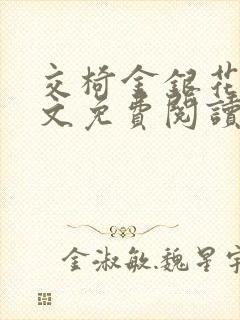 交椅金銀花
文免費閱讀
金淑敏.魏星宇